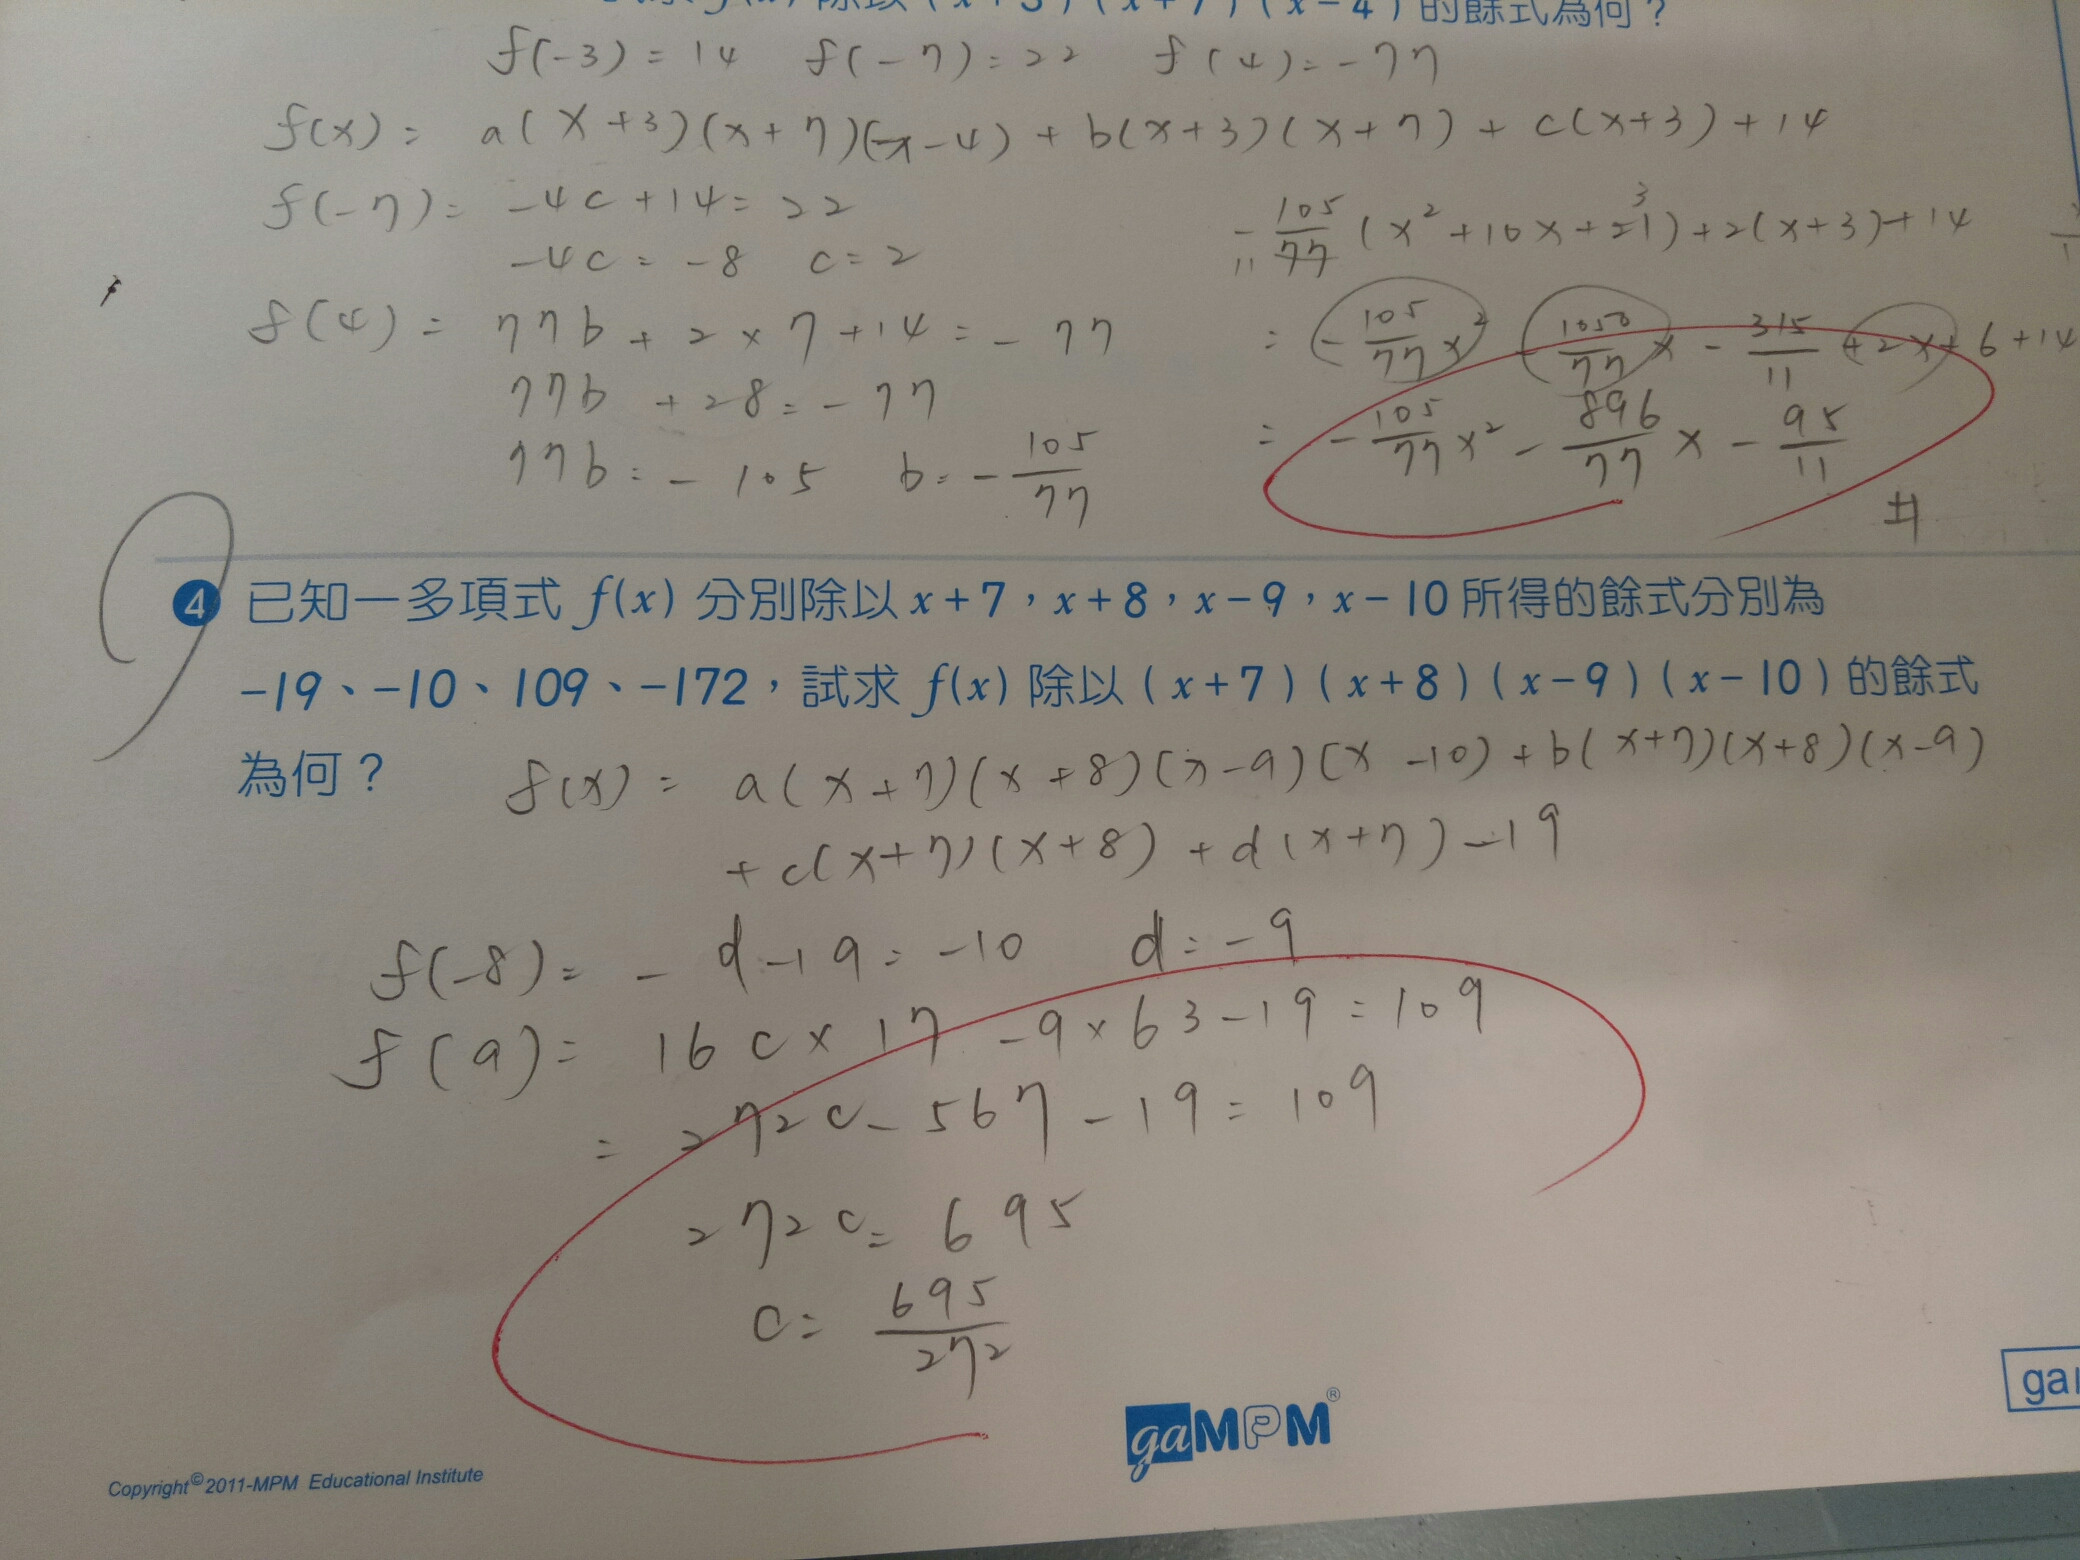 除以(x+3)(x+7)(x-4)的餘式為何?
f(-3)=14 f(-7)=22 f(4)=-77
f(x)= a(x+3)(x+7)(x-4)+b(x+3)(x+7)+c(x+3)+14
f(-7)= -4c+14=22
-4c=-8 c=2
f(4)= 77b+2×7+14=-77
77b+28=-77
77b=-105 b=-105/77
-105/77(x²+10x+21)+2(x+3)+14
3
11
= -105/77x² -1050/77x -315/11 +2x+6+14
= -105/77x² - 896/77x - 95/11
#
4 已知一多項式 f(x) 分別除以 x+7,x+8,x-9,x-10 所得的餘式分別為
-19、-10、109、-172,試求 f(x) 除以(x+7)(x+8)(x-9)(x-10)的餘式
為何?
f(x)= a(x+7)(x+8)(x-9)(x-10)+b(x+7)(x+8)(x-9)
+c(x+7)(x+8)+d(x+7)-19
f(-8)= -d-19=-10 d=-9
f(9)= 16c×17-9×63-19=109
= 272c-567-19=109
272c=695
c=695/272
gaMPM®
Copyright©2011-MPM Educational Institute